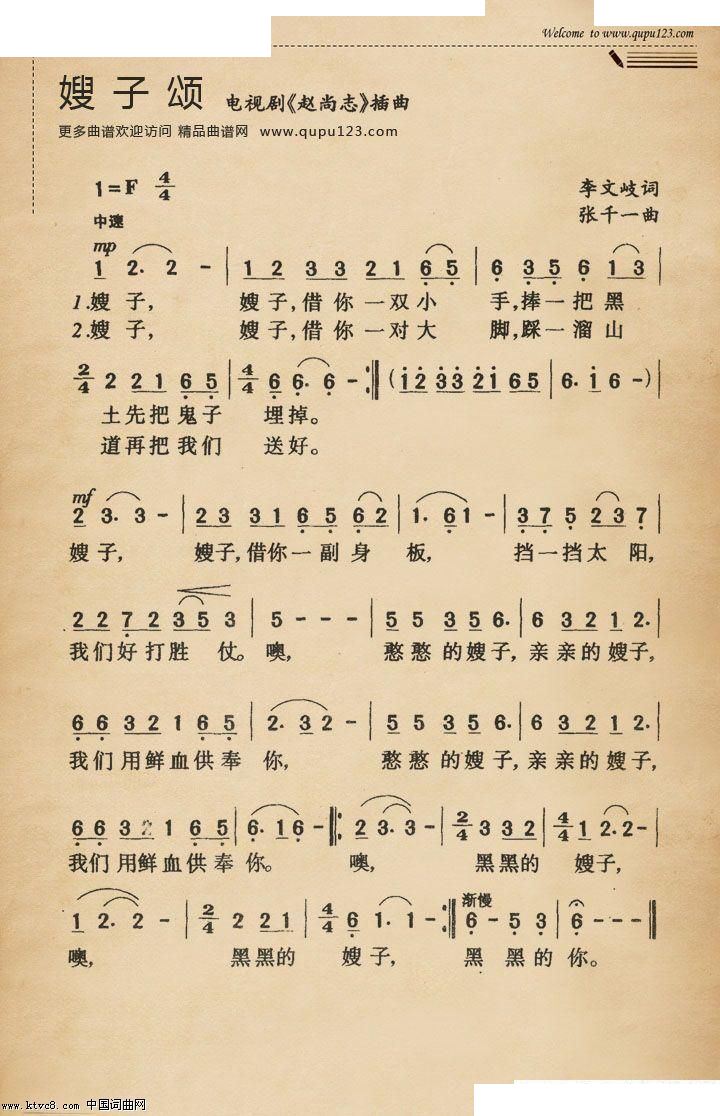 Welcome to www.qupu123.com
嫂子颂 电视剧《赵尚志》插曲
更多曲谱欢迎访问 精品曲谱网 www.qupu123.com
1=F 4/4
李文岐词
中速
张千一曲
mp
1 2. 2 - | 1 2 3 3 2 1 6 5 | 6 3 5 6 1 3 |
1.嫂子, 嫂子,借你一双小 手,捧一把黑
2.嫂子, 嫂子,借你一对大 脚,踩一溜山
2/4 2 2 1 6 5 | 4/4 6 6. 6 - :‖ (1 2 3 3 2 1 6 5 | 6. 1 6 -) |
土先把鬼子 埋掉。
道再把我们 送好。
mf
2 3. 3 - | 2 3 3 1 6 5 6 2 | 1. 6 1 - | 3 7 5 2 3 7 |
嫂子, 嫂子,借你一副身 板, 挡一挡太阳,
2 2 7 2 3 5 3 | 5 - - - | 5 5 3 5 6. | 6 3 2 1 2. |
我们好打胜 仗。噢, 憨憨的嫂子,亲亲的嫂子,
6 6 3 2 1 6 5 | 2. 3 2 - | 5 5 3 5 6. | 6 3 2 1 2. |
我们用鲜血供奉 你, 憨憨的嫂子,亲亲的嫂子,
6 6 3 2 1 6 5 | 6. 1 6 - :‖ 2 3. 3 - | 2/4 3 3 2 | 4/4 1 2. 2 - |
我们用鲜血供奉 你。 噢, 黑黑的 嫂子,
渐慢
1 2. 2 - | 2/4 2 2 1 | 4/4 6 1. 1 - :‖ 6 - 5 3 | 6 - - - ‖
噢, 黑黑的 嫂子, 黑 黑的你。
www.ktvc8.com 中国词曲网